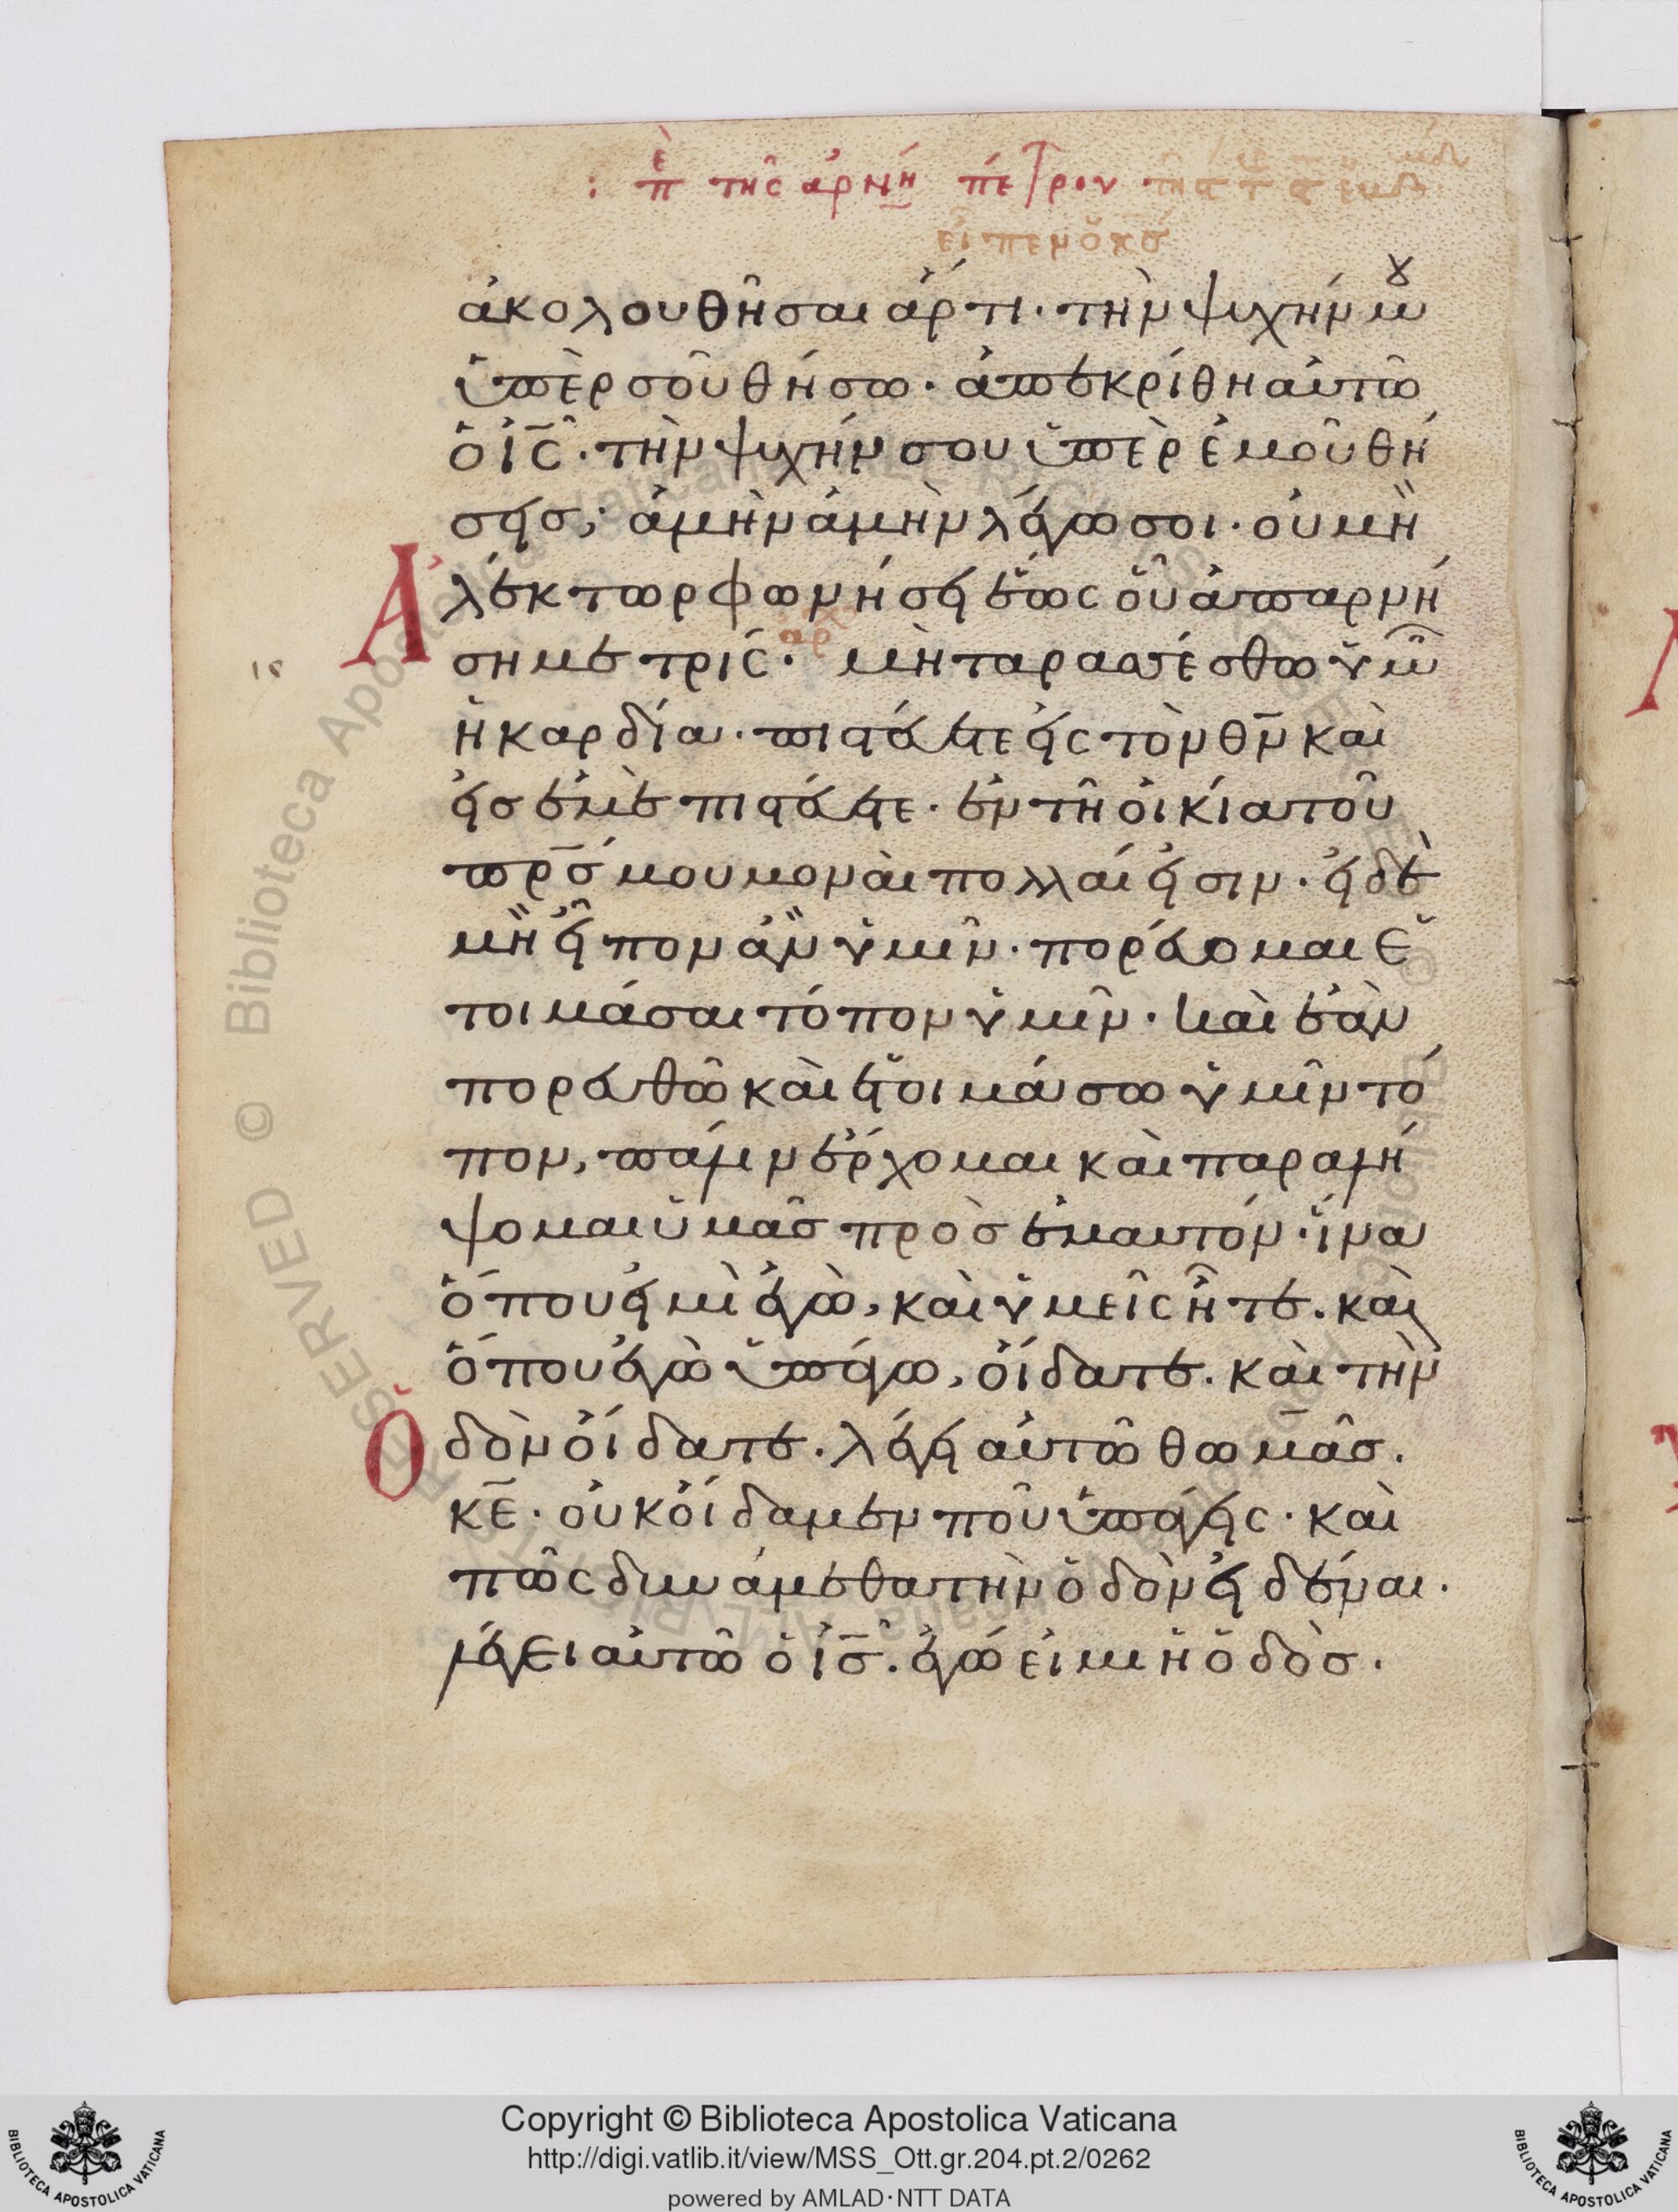 : ἐπ της ἀρνή πέτρου
εἶπεν ὁ κς
ἀκολουθῆσαι ἄρτι· τὴν ψυχήν μου
ὑπὲρ σοῦ θήσω· ἀπεκρίθη αὐτῶ
ὁ ις· τὴν ψυχήν σου ὑπὲρ ἐμοῦ θή
σεις; ἀμὴν ἀμὴν λέγω σοι· οὐ μὴ
Ἀλέκτωρ φωνήσει ἕως οὗ ἀπαρνή
ση με τρίς· αρχ μὴ ταρασσέσθω ὑμῶν
ἡ καρδία· πιστεύετε εἰς τὸν θν καὶ
εἰς ἐμὲ πιστεύετε· ἐν τῆ οἰκία τοῦ
πρς μου μοναὶ πολλαί εἰσιν· εἰ δὲ
μὴ εἶπον ἂν ὑμῖν· πορεύομαι ἑ
τοιμάσαι τόπον ὑμῖν· καὶ ἐὰν
πορευθῶ καὶ ἑτοιμάσω ὑμῖν τό
πον, πάλιν ἔρχομαι καὶ παραλή
ψομαι ὑμᾶς πρὸς ἐμαυτόν· ἵνα
ὅπου εἰμὶ ἐγὼ, καὶ ὑμεῖς ἦτε. καὶ
ὅπου ἐγὼ ὑπάγω, οἴδατε. καὶ τὴν
Ὁδὸν οἴδατε. λέγει αὐτῶ θωμᾶς.
κε· οὐκ οἴδαμεν ποῦ ὑπάγεις· καὶ
πῶς δυνάμεθα τὴν ὁδὸν εἰδέναι.
λέγει αὐτῶ ὁ ις. ἐγώ εἰμι ἡ ὁδὸς.
RESERVED © Biblioteca Apostolica Vaticana
Copyright © Biblioteca Apostolica Vaticana
http://digi.vatlib.it/view/MSS_Ott.gr.204.pt.2/0262
powered by AMLAD·NTT DATA
BIBLIOTECA APOSTOLICA VATICANA
BIBLIOTECA APOSTOLICA VATICANA